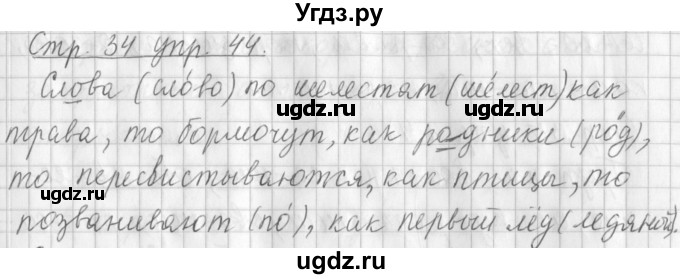 Угдз.ру
Стр. 34 упр. 44.
Слова (сло́во) по шелестят (ше́лест) как
трава, то бормочут, как родники (ро́д),
то пересвистываются, как птицы, то
позванивают (по́), как первый лёд (ледяной).
gdz.ru
gdz.ru
gdz.ru
gdz.ru
Угдз.ру